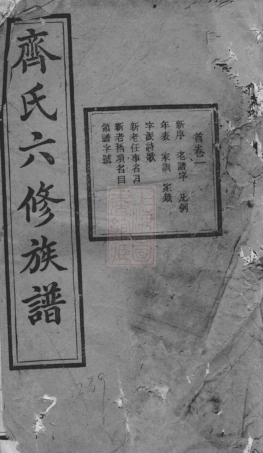 齊氏六修族譜
首卷一
新序 老譜序 凡例
年表 家訓 家箴
字派詩歌
新老任事名目
新老捐項名目
領譜字號
239